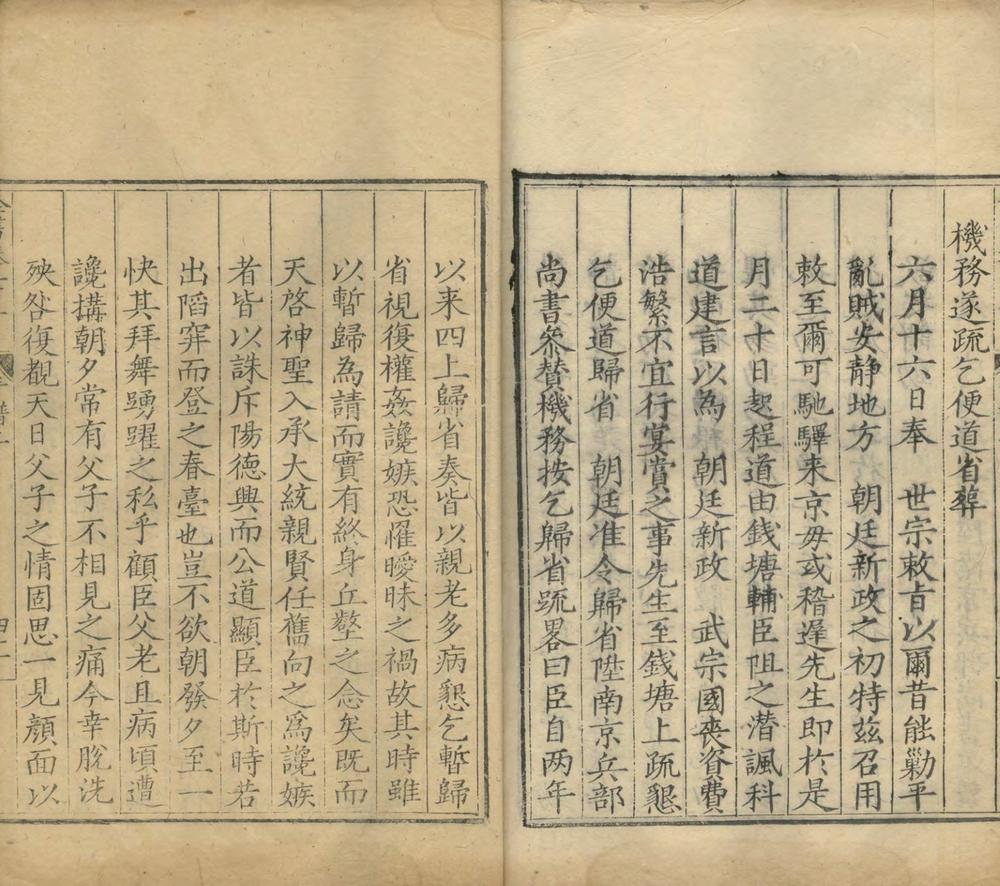 機務遂疏乞便道省葬
六月十六日奉　世宗敕㫖以爾昔能勦平
亂賊安靜地方　朝廷新政之初特茲召用
敕至爾可馳驛来京毋或稽遲先生即於是
月二十日起程道由錢塘輔臣阻之潜諷科
道建言以為　朝廷新政　武宗國喪資費
浩繁不宜行宴賞之事先生至錢塘上疏懇
乞便道歸省　朝廷准令歸省陞南京兵部
尚書叅贊機務按乞歸省疏畧曰臣自两年
以来四上歸省奏皆以親老多病懇乞暫歸
省視復權姦讒嫉恐罹曖昧之禍故其時雖
以暫歸為請而實有終身丘壑之念矣既而
天啓神聖入承大統親賢任舊向之為讒嫉
者皆以誅斥陽德興而公道顯臣於斯時若
出陷穽而登之春臺也豈不欲朝發夕至一
快其拜舞踴躍之私乎顧臣父老且病頃遭
讒搆朝夕常有父子不相見之痛今幸脫洗
殃咎復覩天日父子之情固思一見顏面以